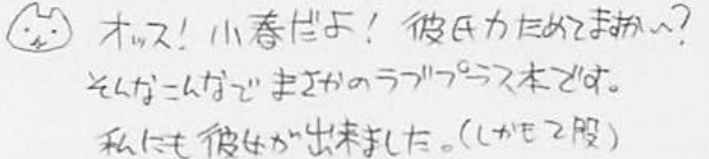 オッス！小春だよ！彼氏力ためてますか〜？
そんなこんなでまさかのラブプラス本です。
私にも彼女が出来ました。(しかも2股)